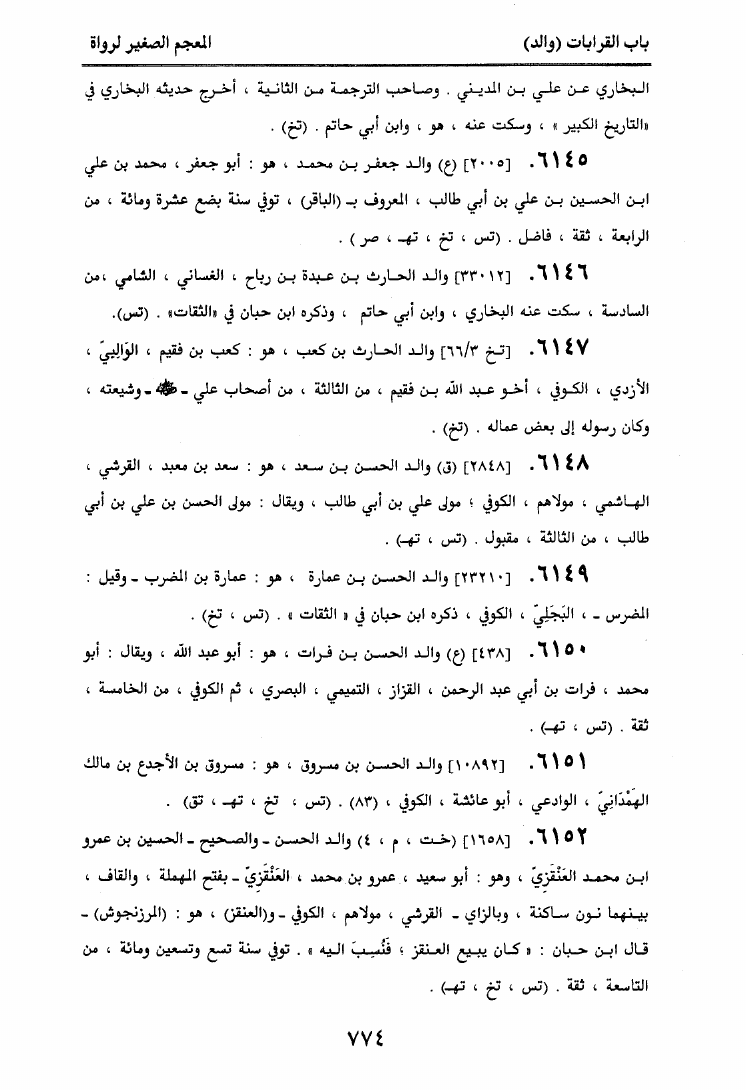 باب القرابات (والد) المعجم الصغير لرواة
البخاري عن علي بن المديني . وصاحب الترجمة من الثانية ، أخرج حديثه البخاري في
«التاريخ الكبير » ، وسكت عنه ، هو ، وابن أبي حاتم . (تخ) .
٦١٤٥. [٢٠٠٥] (ع) والد جعفر بن محمد ، هو : أبو جعفر ، محمد بن علي
ابن الحسين بن علي بن أبي طالب ، المعروف بـ (الباقر) ، توفي سنة بضع عشرة ومائة ، من
الرابعة ، ثقة ، فاضل . (تس ، تخ ، تهـ ، صر ) .
٦١٤٦. [٣٣٠١٢] والد الحارث بن عبدة بن رباح ، الغساني ، الشامي ،من
السادسة ، سكت عنه البخاري ، وابن أبي حاتم ، وذكره ابن حبان في «الثقات» . (تس).
٦١٤٧. [تخ ٦٦/٣] والد الحارث بن كعب ، هو : كعب بن فقيم ، الوَالِبيّ ،
الأزدي ، الكوفي ، أخو عبد الله بن فقيم ، من الثالثة ، من أصحاب علي ـ ﷺ ـ وشيعته ،
وكان رسوله إلى بعض عماله . (تخ) .
٦١٤٨. [٢٨٤٨] (ق) والد الحسن بن سعد ، هو : سعد بن معبد ، القرشي ،
الهاشمي ، مولاهم ، الكوفي ؛ مولى علي بن أبي طالب ، ويقال : مولى الحسن بن علي بن أبي
طالب ، من الثالثة ، مقبول . (تس ، تهـ) .
٦١٤٩. [٢٣٢١٠] والد الحسن بن عمارة ، هو : عمارة بن المضرب ـ وقيل :
المضرس ـ ، البَجَلِيّ ، الكوفي ، ذكره ابن حبان في « الثقات » . (تس ، تخ) .
٦١٥٠. [٤٣٨] (ع) والد الحسن بن فرات ، هو : أبو عبد الله ، ويقال : أبو
محمد ، فرات بن أبي عبد الرحمن ، القزاز ، التميمي ، البصري ، ثم الكوفي ، من الخامسة ،
ثقة . (تس ، تهـ) .
٦١٥١. [١٠٨٩٢] والد الحسن بن مسروق ، هو : مسروق بن الأجدع بن مالك
الهَمْدَانِيّ ، الوادعي ، أبو عائشة ، الكوفي ، (٨٣) . (تس ، تخ ، تهـ ، تق) .
٦١٥٢. [١٦٥٨] (خت ، م ، ٤) والد الحسن ـ والصحيح ـ الحسين بن عمرو
ابن محمد العَنْقَزِيّ ، وهو : أبو سعيد ، عمرو بن محمد ، العَنْقَزِيّ ـ بفتح المهملة ، والقاف ،
بينهما نون ساكنة ، وبالزاي ـ القرشي ، مولاهم ، الكوفي ـ و(العنقز) ، هو : (المرزنجوش) ـ
قال ابن حبان : « كان يبيع العنقز ؛ فَنُسِبَ اليه » . توفي سنة تسع وتسعين ومائة ، من
التاسعة ، ثقة . (تس ، تخ ، تهـ) .
٧٧٤